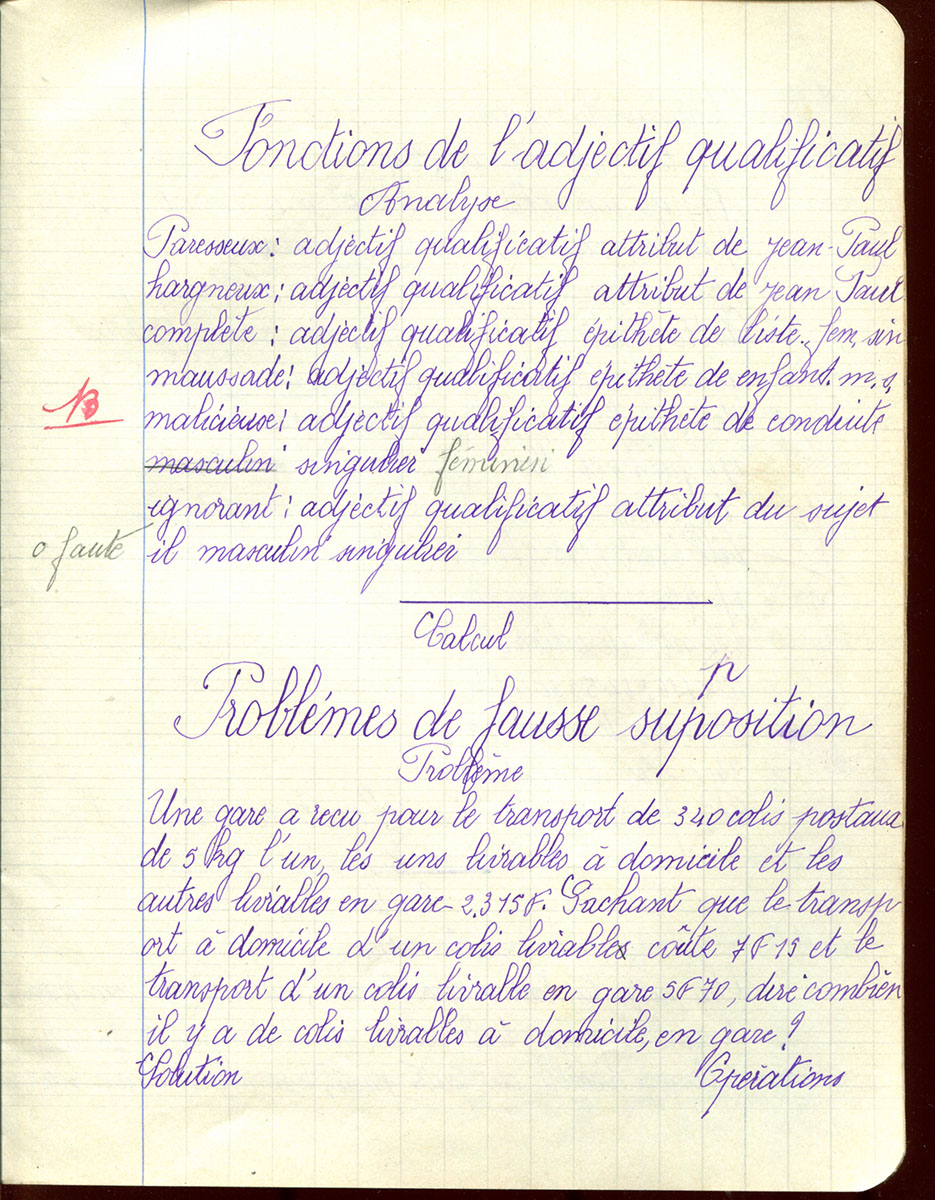 Fonctions de l'adjectif qualificatif
Analyse
Paresseux : adjectif qualificatif attribut de Jean-Paul
hargneux : adjectif qualificatif attribut de Jean Paul
complète : adjectif qualificatif épithète de liste., fem. sin
maussade : adjectif qualificatif épithète de enfant. m. s.
B
malicieuse : adjectif qualificatif épithète de conduite
masculin singulier féminin
ignorant : adjectif qualificatif attribut du sujet
0 faute il masculin singulier
Calcul
p
Problémes de fausse suposition
Problème
Une gare a recu pour le transport de 340 colis postaux
de 5 kg l'un, les uns livrables à domicile et les
autres livrables en gare 2.315F. Sachant que le transp
ort à domicile d'un colis livrables coûte 7F15 et le
transport d'un colis livrable en gare 5F70, dire combien
il y a de colis livrables à domicile, en gare ?
Solution Opérations